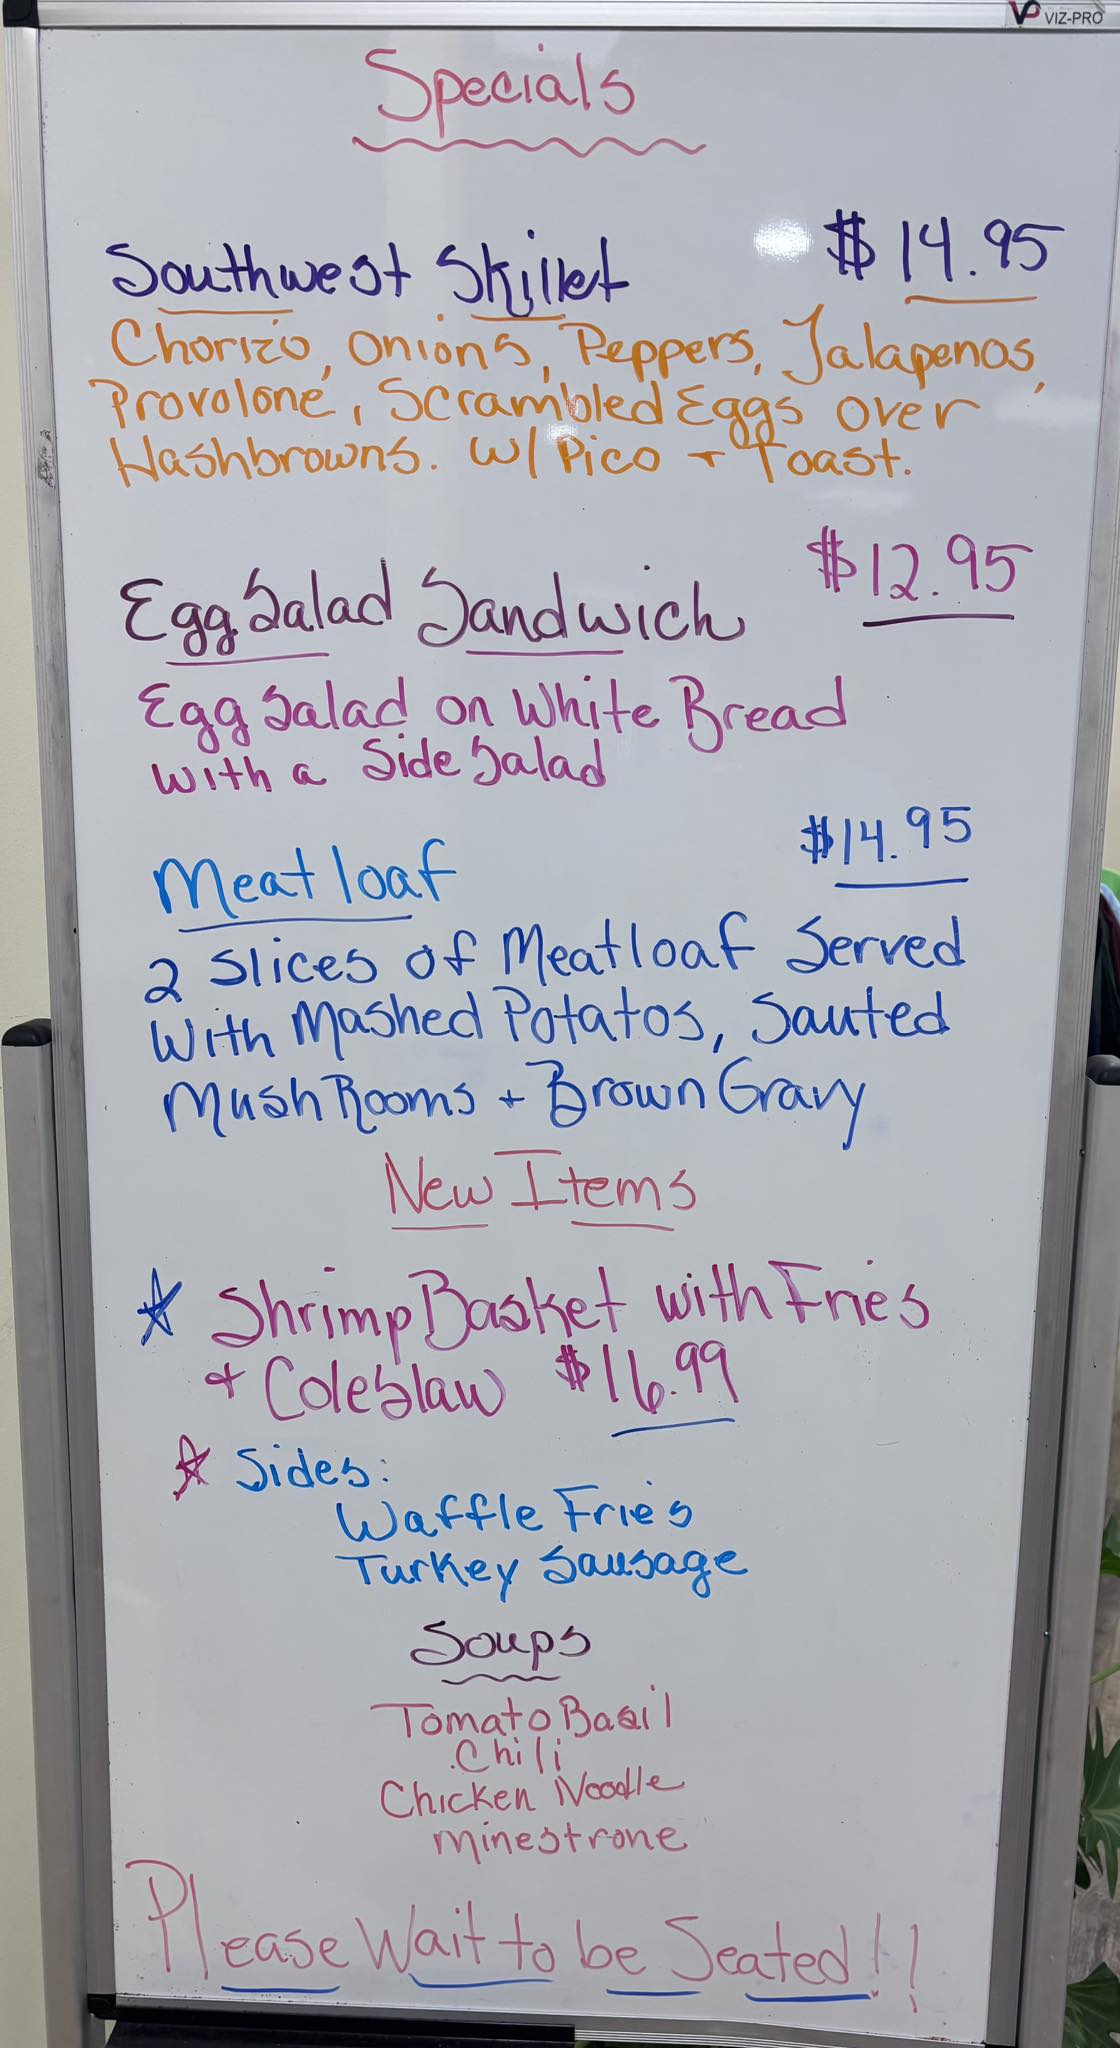 VP VIZ-PRO
Specials
Southwest Skillet $14.95
Chorizo, Onions, Peppers, Jalapenos,
Provolone, Scrambled Eggs over
Hashbrowns. W/ Pico + Toast.
Egg Salad Sandwich $12.95
Egg Salad on White Bread
with a Side Salad
Meatloaf $14.95
2 Slices of Meatloaf Served
With Mashed Potatos, Sauted
MushRooms + Brown Gravy
New Items
☆ Shrimp Basket with Fries
+ Coleslaw $16.99
☆ Sides:
Waffle Fries
Turkey Sausage
Soups
Tomato Basil
Chili
Chicken Noodle
minestrone
Please Wait to be Seated!!